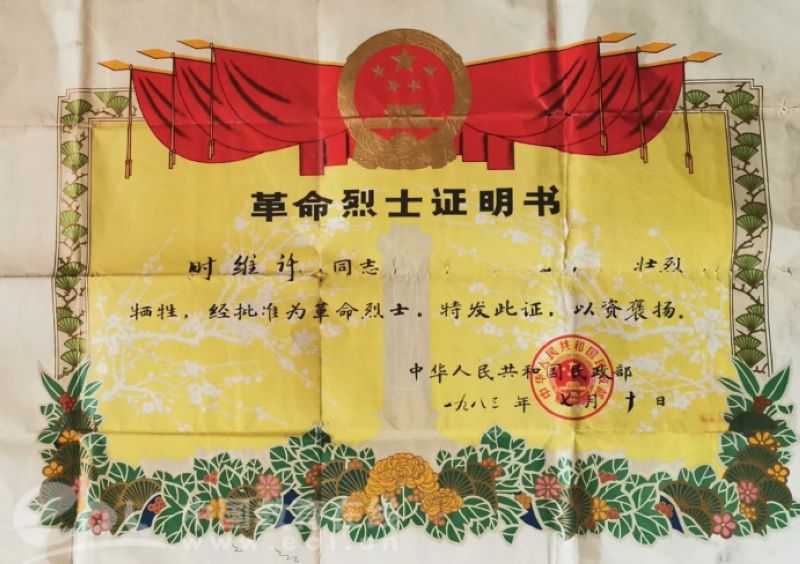 革命烈士证明书
时维许 同志 壮烈
牺牲，经批准为革命烈士。特发此证，以资褒扬。
中华人民共和国民政部
一九八三年 七月 十日
www.ecl.cn